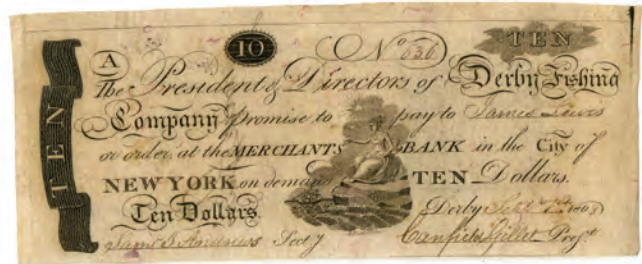 10 No. 636 TEN
A
The President & Directors of Derby Fishing
Company promise to pay to James Lewis
or order, at the MERCHANTS BANK in the City of
NEW YORK on demand TEN Dollars.
Ten Dollars. Derby Sept 1808
Saml I Andrews Secty Canfield Gillet Prest
TEN